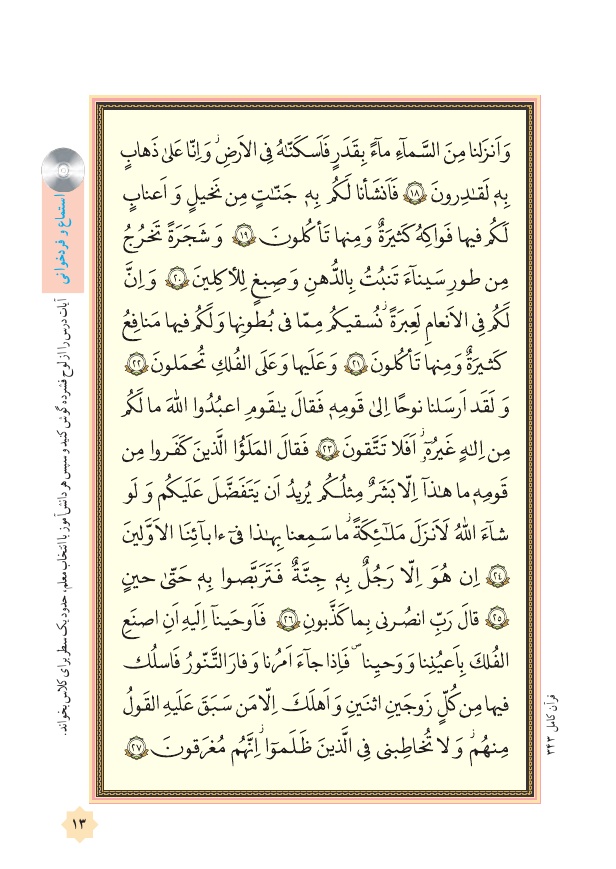 وَ اَنزَلنا مِنَ السَّماۤءِ ماۤءً بِقَدَرٍ فَاَسكَنّـٰهُ فِی الاَرضِۖ وَ اِنّا عَلیٰ ذَهابٍ
بِهٖ لَقـٰدِرونَ ﴿١٨﴾ فَاَنشَأنا لَكُم بِهٖ جَنّـٰتٍ مِن نَخیلٍ وَ اَعنابٍ
لَكُم فیها فَواكِهُ كَثیرَةٌ وَ مِنها تَأكُلونَ ﴿١٩﴾ وَ شَجَرَةً تَخرُجُ
مِن طورِ سَیناۤءَ تَنبُتُ بِالدُّهنِ وَ صِبغٍ لِلـٔاكِلینَ ﴿٢٠﴾ وَ اِنَّ
لَكُم فِی الاَنعامِ لَعِبرَةًۖ نُسقیكُم مِمّا فی بُطونِها وَ لَكُم فیها مَنافِعُ
كَثیرَةٌ وَ مِنها تَأكُلونَ ﴿٢١﴾ وَ عَلَیها وَ عَلَی الفُلكِ تُحمَلونَ ﴿٢٢﴾
وَ لَقَد اَرسَلنا نوحًا اِلیٰ قَومِهٖ فَقالَ یـٰقَومِ اعبُدُوا اللّٰهَ ما لَكُم
مِن اِلـٰهٍ غَیرُهٗۤۖ اَفَلا تَتَّقونَ ﴿٢٣﴾ فَقالَ المَلَؤُا الَّذینَ كَفَروا مِن
قَومِهٖ ما هـٰذاۤ اِلّا بَشَرٌ مِثلُكُم یُریدُ اَن یَتَفَضَّلَ عَلَیكُم وَ لَو
شاۤءَ اللّٰهُ لَاَنزَلَ مَلـٰۤئِكَةً ما سَمِعنا بِهـٰذا فیۤ ءابآئِنَا الاَوَّلینَ
﴿٢٤﴾ اِن هُوَ اِلّا رَجُلٌ بِهٖ جِنَّةٌ فَتَرَبَّصوا بِهٖ حَتّیٰ حینٍ
﴿٢٥﴾ قالَ رَبِّ انصُرنی بِما كَذَّبونِ ﴿٢٦﴾ فَاَوحَیناۤ اِلَیهِ اَنِ اصنَعِ
الفُلكَ بِاَعیُنِنا وَ وَحیِنا فَاِذا جاۤءَ اَمرُنا وَ فارَ التَّنّورُ فَاسلُك
فیها مِن كُلٍّ زَوجَینِ اثنَینِ وَ اَهلَكَ اِلّا مَن سَبَقَ عَلَیهِ القَولُ
مِنهُمۖ وَ لا تُخاطِبنی فِی الَّذینَ ظَلَمواۤۖ اِنَّهُم مُغرَقونَ ﴿٢٧﴾
استماع و فردخوانی
آیات درس را از لوح فشرده گوش کنید و سپس هر دانش‌آموز با انتخاب معلم، حدود یک سطر برای کلاس بخواند.
قرآن کامل ۳۴۳
۱۳